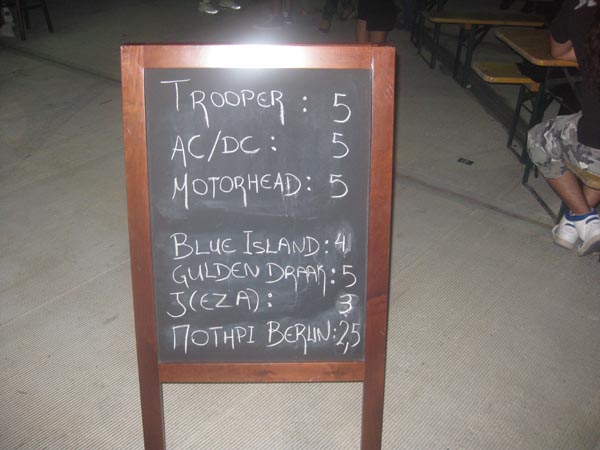 TROOPER: 5
AC/DC: 5
MOTORHEAD: 5
BLUE ISLAND: 4
GULDEN DRAAK: 5
J(EZA): 3
ΠΟΤΗΡΙ BERLIN: 2,5